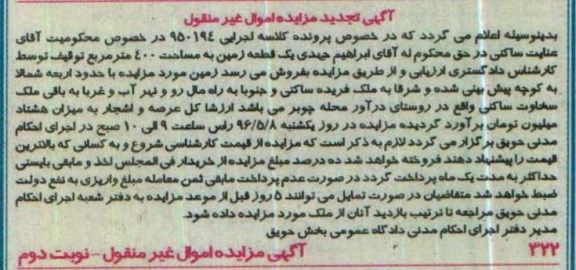 آگهی تجدید مزایده اموال غیر منقول
بدینوسیله اعلام می گردد که در خصوص پرونده کلاسه اجرایی ۹۵۰۱۹۴ در خصوص محکومیت آقای
عنایت ساکتی در حق محکوم له آقای ابراهیم حیدی یک قطعه زمین به مساحت ۴۰۰ مترمربع توقیف توسط
کارشناس دادگستری ارزیابی و از طریق مزایده بفروش می رسد زمین مورد مزایده با حدود اربعه شمالا
به کوچه پیش بینی شده و شرقا به ملک فریده ساکتی و جنوبا به راه مال رو و نهر آب و غربا به باقی ملک
سخاوت ساکتی واقع در روستای درآور محله چوبر می باشد ارزشا کل عرصه و اشجار به میزان هشتاد
میلیون تومان برآورد گردیده مزایده در روز یکشنبه ۹۶/۵/۸ راس ساعت ۹ الی ۱۰ صبح در اجرای احکام
مدنی حویق برگزار می گردد لازم به ذکر است که مزایده از قیمت کارشناسی شروع و به کسانی که بالاترین
قیمت را پیشنهاد دهند فروخته خواهد شد ده درصد مبلغ مزایده از خریدار فی المجلس اخذ و مابقی بایستی
حداکثر به مدت یک ماه پرداخت گردد در صورت عدم پرداخت مابقی ثمن معامله مبلغ واریزی به نفع دولت
ضبط خواهد شد متقاضیان در صورت تمایل می توانند ۵ روز قبل از موعد مزایده به دفتر شعبه اجرای احکام
مدنی حویق مراجعه تا ترتیب بازدید آنان از ملک مورد مزایده داده شود.
مدیر دفتر اجرای احکام مدنی دادگاه عمومی بخش حویق
۳۲۲ آگهی مزایده اموال غیر منقول – نوبت دوم